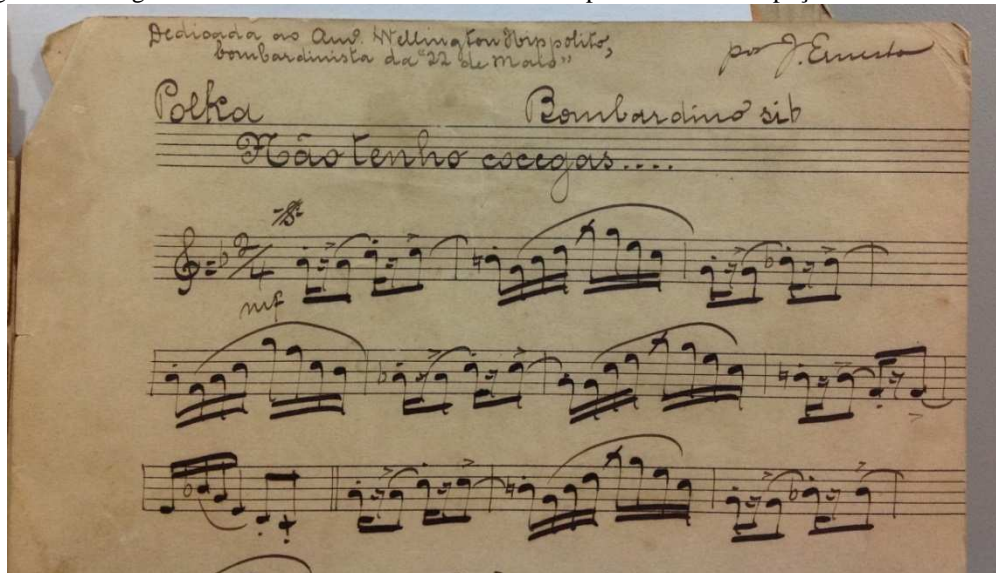 Dedicada ao Amº Wellington Hippolito,
bombardinista da "22 de Maio"
por J. Ernesto
Polka
Bombardino sib
Não tenho cocegas....
2/4
mf